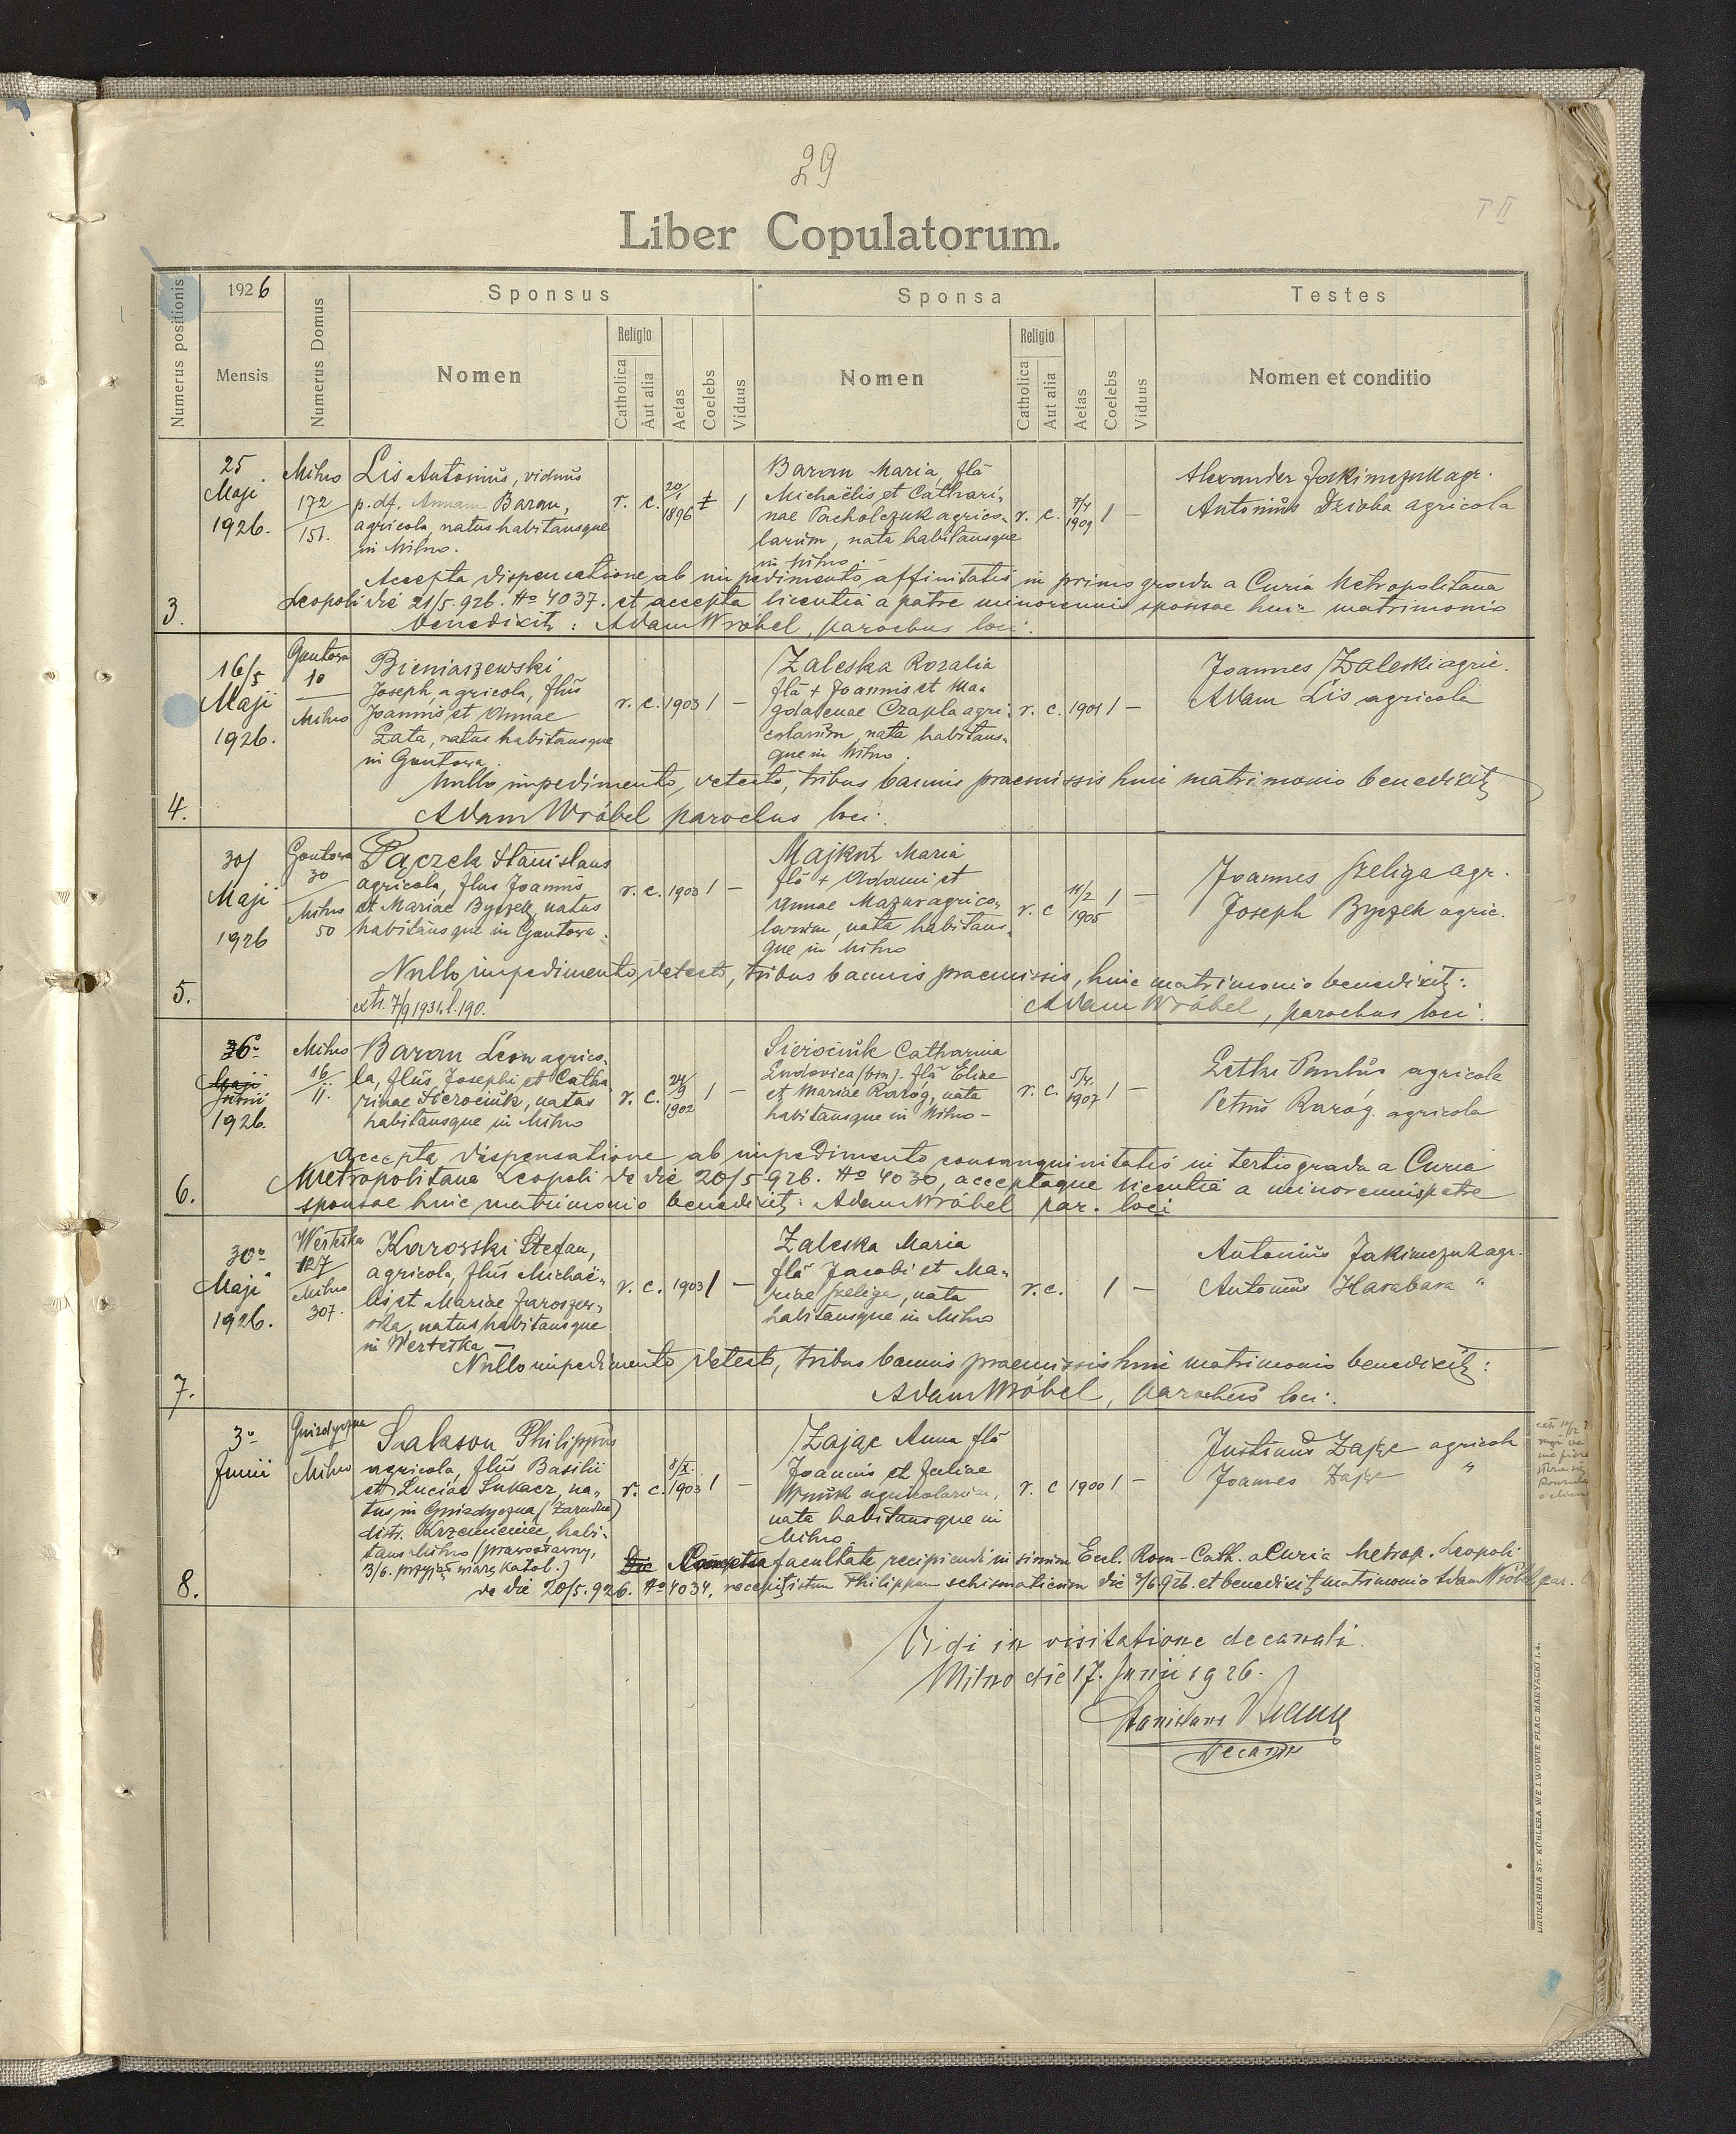 29
T II
Liber Copulatorum.
Numerus positionis
1926
Mensis
Numerus Domus
Sponsus
Nomen
Religio
Catholica
Aut alia
Aetas
Coelebs
Viduus
Sponsa
Nomen
Religio
Catholica
Aut alia
Aetas
Coelebs
Viduus
Testes
Nomen et conditio
3.
25
Maji
1926.
Milno
172
151.
Lis Antonius, viduus
p. df. Annam Baran,
agricola, natus habitansque
in Milno.
r. c.
20/1
1896
1
Baran Maria, fla
Michaëlis et Cathari-
nae Pacholczuk agrico-
larum, nata habitansque
in Milno.
r. c.
7/4
1909
1 -
Alexander Jaskimczuk agr.
Antonius Dzioba agricola
Accepta dispensatione ab impedimento affinitatis in primo gradu a Curia Metropolitana
Leopoli die 21/5.926. No 4037. et accepta licentia a patre minorennis sponsae huic matrimonio
benedixit: Adam Wróbel, parochus loci.
4.
16/5
Maji
1926.
Gontowa
10
Milno
Bieniaszewski
Joseph, agricola, flus
Joannis et Annae
Łata, natus habitansque
in Gontowa.
r. c. 1903 1 -
Zaleska Rozalia
fla + Joannis et Ma-
gdalenae Czapla agri-
colarum, nata habitans-
que in Milno.
r. c. 1901 1 -
Joannes Zaleski agric.
Adam Lis agricola
Nullo impedimento detecto, tribus bannis praemissis huic matrimonio benedixit
Adam Wróbel parochus loci.
5.
30/
Maji
1926
Gontowa
30
Milno
50
Pączek Stanislaus
agricola, flus Joannis
et Mariae Byczek, natus
habitansque in Gontowa.
r. c. 1903 1 -
Majkut Maria
fla + Adami et
Annae Mazur agrico-
larum, nata habitans-
que in Milno
r. c
11/2
1905
1 -
Joannes Szeliga agr.
Joseph Byczek agric.
Nullo impedimento detecto, tribus bannis praemissis, huic matrimonio benedixit:
extr. 7/9 1931. l. 190.
Adam Wróbel, parochus loci.
6.
6o
Maji
Junii
1926.
Milno
16
11.
Baran Leon agrico-
la, flus Josephi et Catha
rinae Sierociuk, natus
habitansque in Milno
r. c.
24/9
1902
1 -
Sierociuk Catharina
Ludovica (bin). fla Eliae
et Mariae Raróg, nata
habitansque in Milno -
r. c.
5/4.
1907
1 -
Letki Paulus agricola
Petrus Raróg agricola
Accepta dispensatione ab impedimento consanguinitatis in tertio gradu a Curia
Metropolitana Leopoli de die 20/5 926. No 4030, acceptaque licentia a minorennis patre
sponsae huic matrimonio benedixit: Adam Wróbel par. loci
7.
30o
Maji
1926.
Wertełka
127
Milno
307.
Karowski Stefan,
agricola, flus Michaë-
lis et Mariae Jaroszew-
ska, natus habitansque
in Wertełka
r. c. 1903 1 -
Zaleska Maria
fla Jacobi et Ma-
riae Szeliga, nata
habitansque in Milno
r. c. 1 -
Antonius Jakimczuk agr.
Antonius Harabara "
Nullo impedimento detecto, tribus bannis praemissis huic matrimonio benedixit:
Adam Wróbel, parochus loci.
8.
3o
Junii
Gniezdyczna
Milno
Sakson Philippus
agricola, flus Basilii
et Luciae Sukacz, na-
tus in Gniazdyczna (Zarudze)
distr. Krzemieniec, habi-
tans Milno (prawosławny,
3/6. przyjął wiarę katol.)
r. c.
8/X.
1903
1 -
Zając Anna fla
Joannis et Juliae
Wnuk agricolarum,
nata habitansque in
Milno
r. c 1900 1 -
Justinus Zając agricola
Joannes Zając "
Accepta facultate recipiendi in sinum Eccl. Rom-Cath. a Curia Metrop. Leopoli
de die 20/5.926. No 4034, recepit istum Philippum schismaticum die 3/6 926. et benedixit matrimonio Adam Wróbel par.
Vidi in visitatione decanali.
Milno die 17. Junii 1926.
Stanislaus
Decanus
DRUKARNIA ST. KÜBLERA WE LWOWIE PLAC MARYACKI L 4.